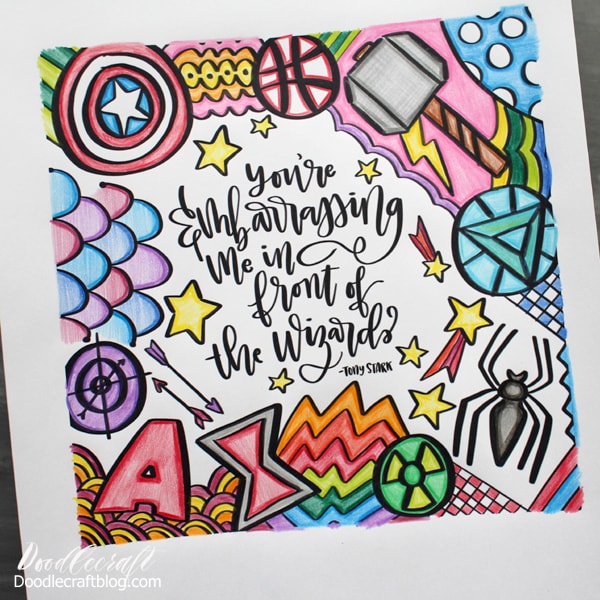 you're
Embarrassing
me in
front of
the Wizards
-TONY STARK
A
Doodlecraft
Doodlecraftblog.com